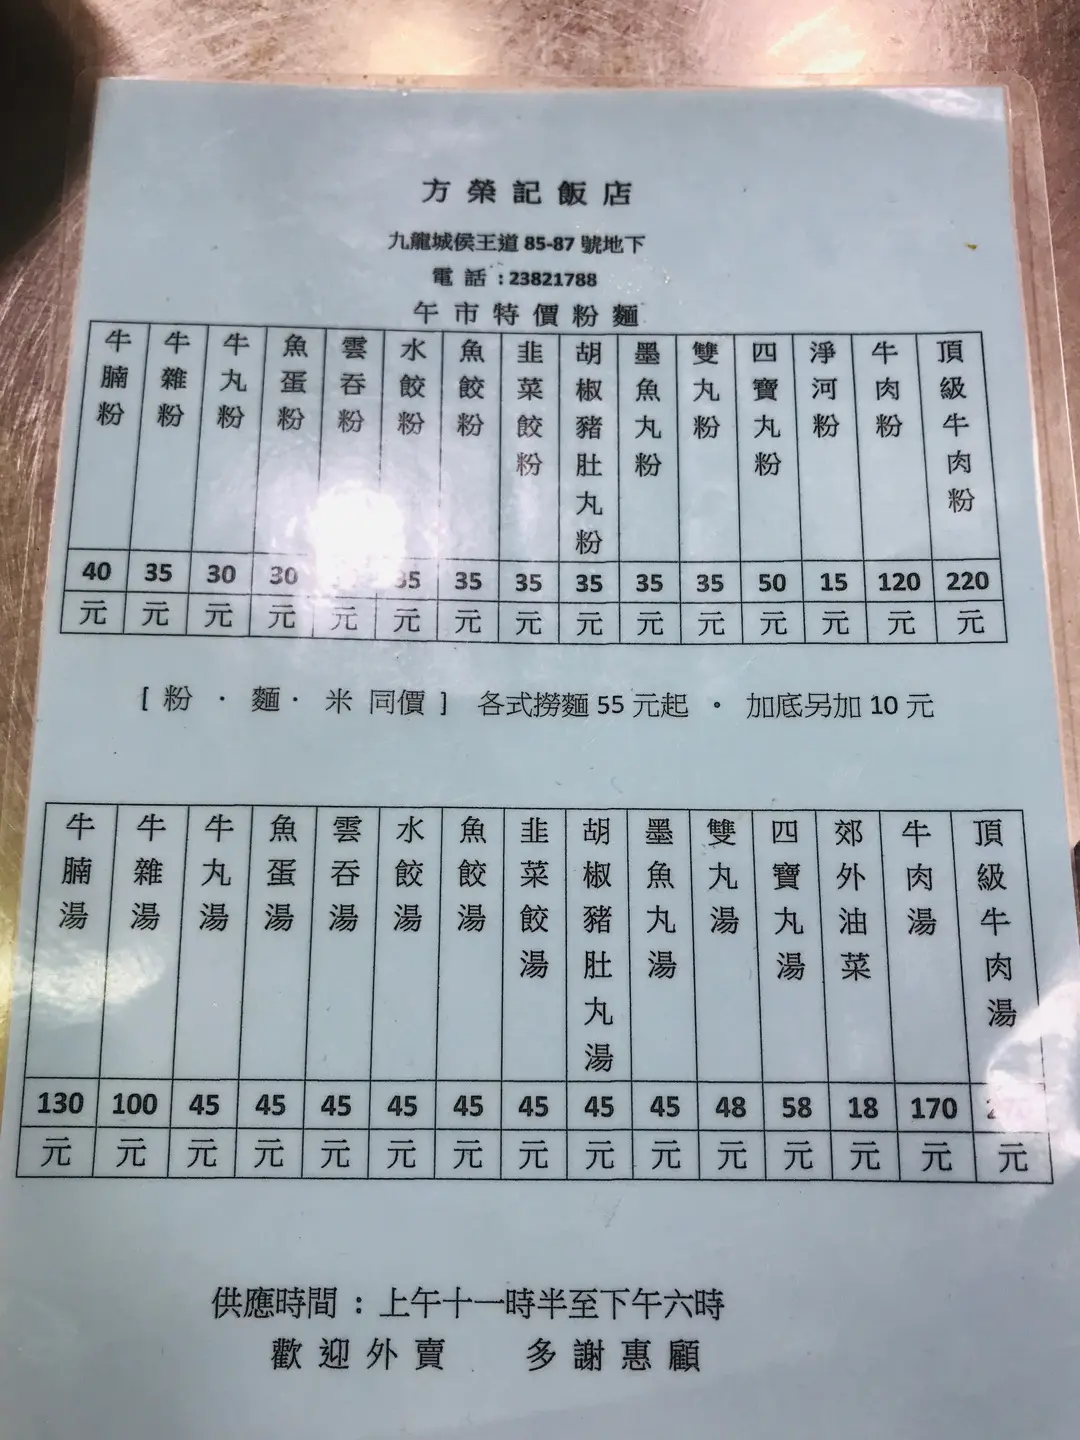 方榮記飯店
九龍城侯王道 85-87 號地下
電話 : 23821788
午市特價粉麵
牛腩粉 牛雜粉 牛丸粉 魚蛋粉 雲吞粉 水餃粉 魚餃粉 韭菜餃粉 胡椒豬肚丸粉 墨魚丸粉 雙丸粉 四寶丸粉 淨河粉 牛肉粉 頂級牛肉粉
40 35 30 30 35 35 35 35 35 35 50 15 120 220
元 元 元 元 元 元 元 元 元 元 元 元 元 元 元
[ 粉 · 麵 · 米 同價 ] 各式撈麵 55 元起 · 加底另加 10 元
牛腩湯 牛雜湯 牛丸湯 魚蛋湯 雲吞湯 水餃湯 魚餃湯 韭菜餃湯 胡椒豬肚丸湯 墨魚丸湯 雙丸湯 四寶丸湯 郊外油菜 牛肉湯 頂級牛肉湯
130 100 45 45 45 45 45 45 45 45 48 58 18 170
元 元 元 元 元 元 元 元 元 元 元 元 元 元 元
供應時間 : 上午十一時半至下午六時
歡迎外賣 多謝惠顧